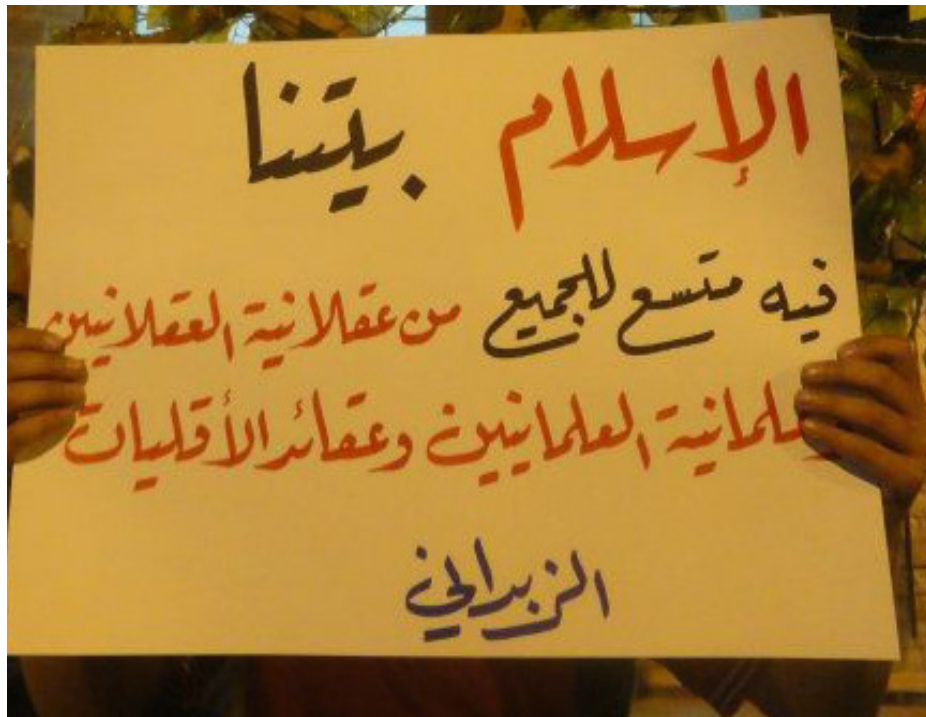 الإسلام بيتنا
فيه متسع للجميع من عقلانية العقلانيين
علمانية العلمانيين وعقائد الأقليات
الزبداني